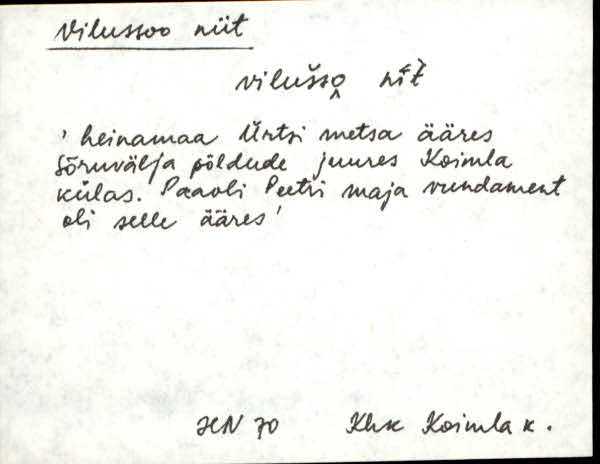 Vilussoo niit
vilušso nit̆
' heinamaa Ürtsi metsa ääres
Sõruvälja põldude juures Koimla
külas. Paaoli Peetri maja vundament
oli selle ääres '
HN 70 Khk Koimla k.